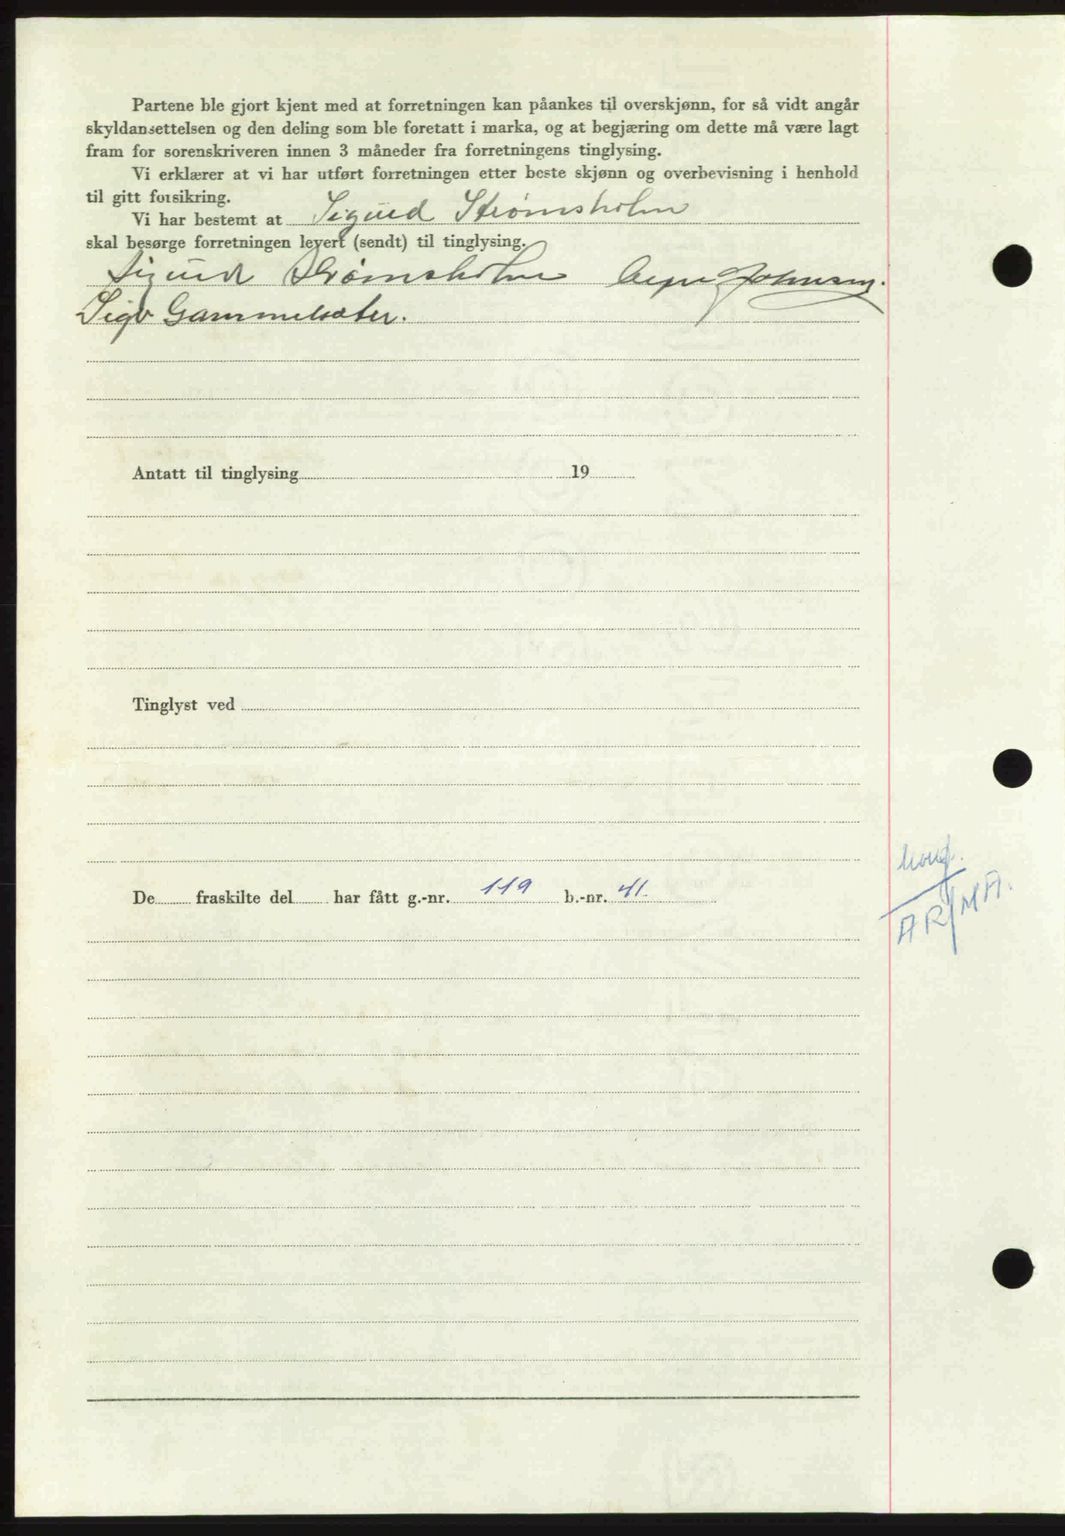 Partene ble gjort kjent med at forretningen kan påankes til overskjønn, for så vidt angår
skyldansettelsen og den deling som ble foretatt i marka, og at begjæring om dette må være lagt
fram for sorenskriveren innen 3 måneder fra forretningens tinglysing.
Vi erklærer at vi har utført forretningen etter beste skjønn og overbevisning i henhold
til gitt forsikring.
Vi har bestemt at Sigurd Strømsholm
skal besørge forretningen levert (sendt) til tinglysing.
Sigurd Strømsholm Johnsen.
Sigv Gammelsæter.
Antatt til tinglysing 19
Tinglyst ved
De fraskilte del har fått g.-nr. 119 b.-nr. 41.
AR/MA.